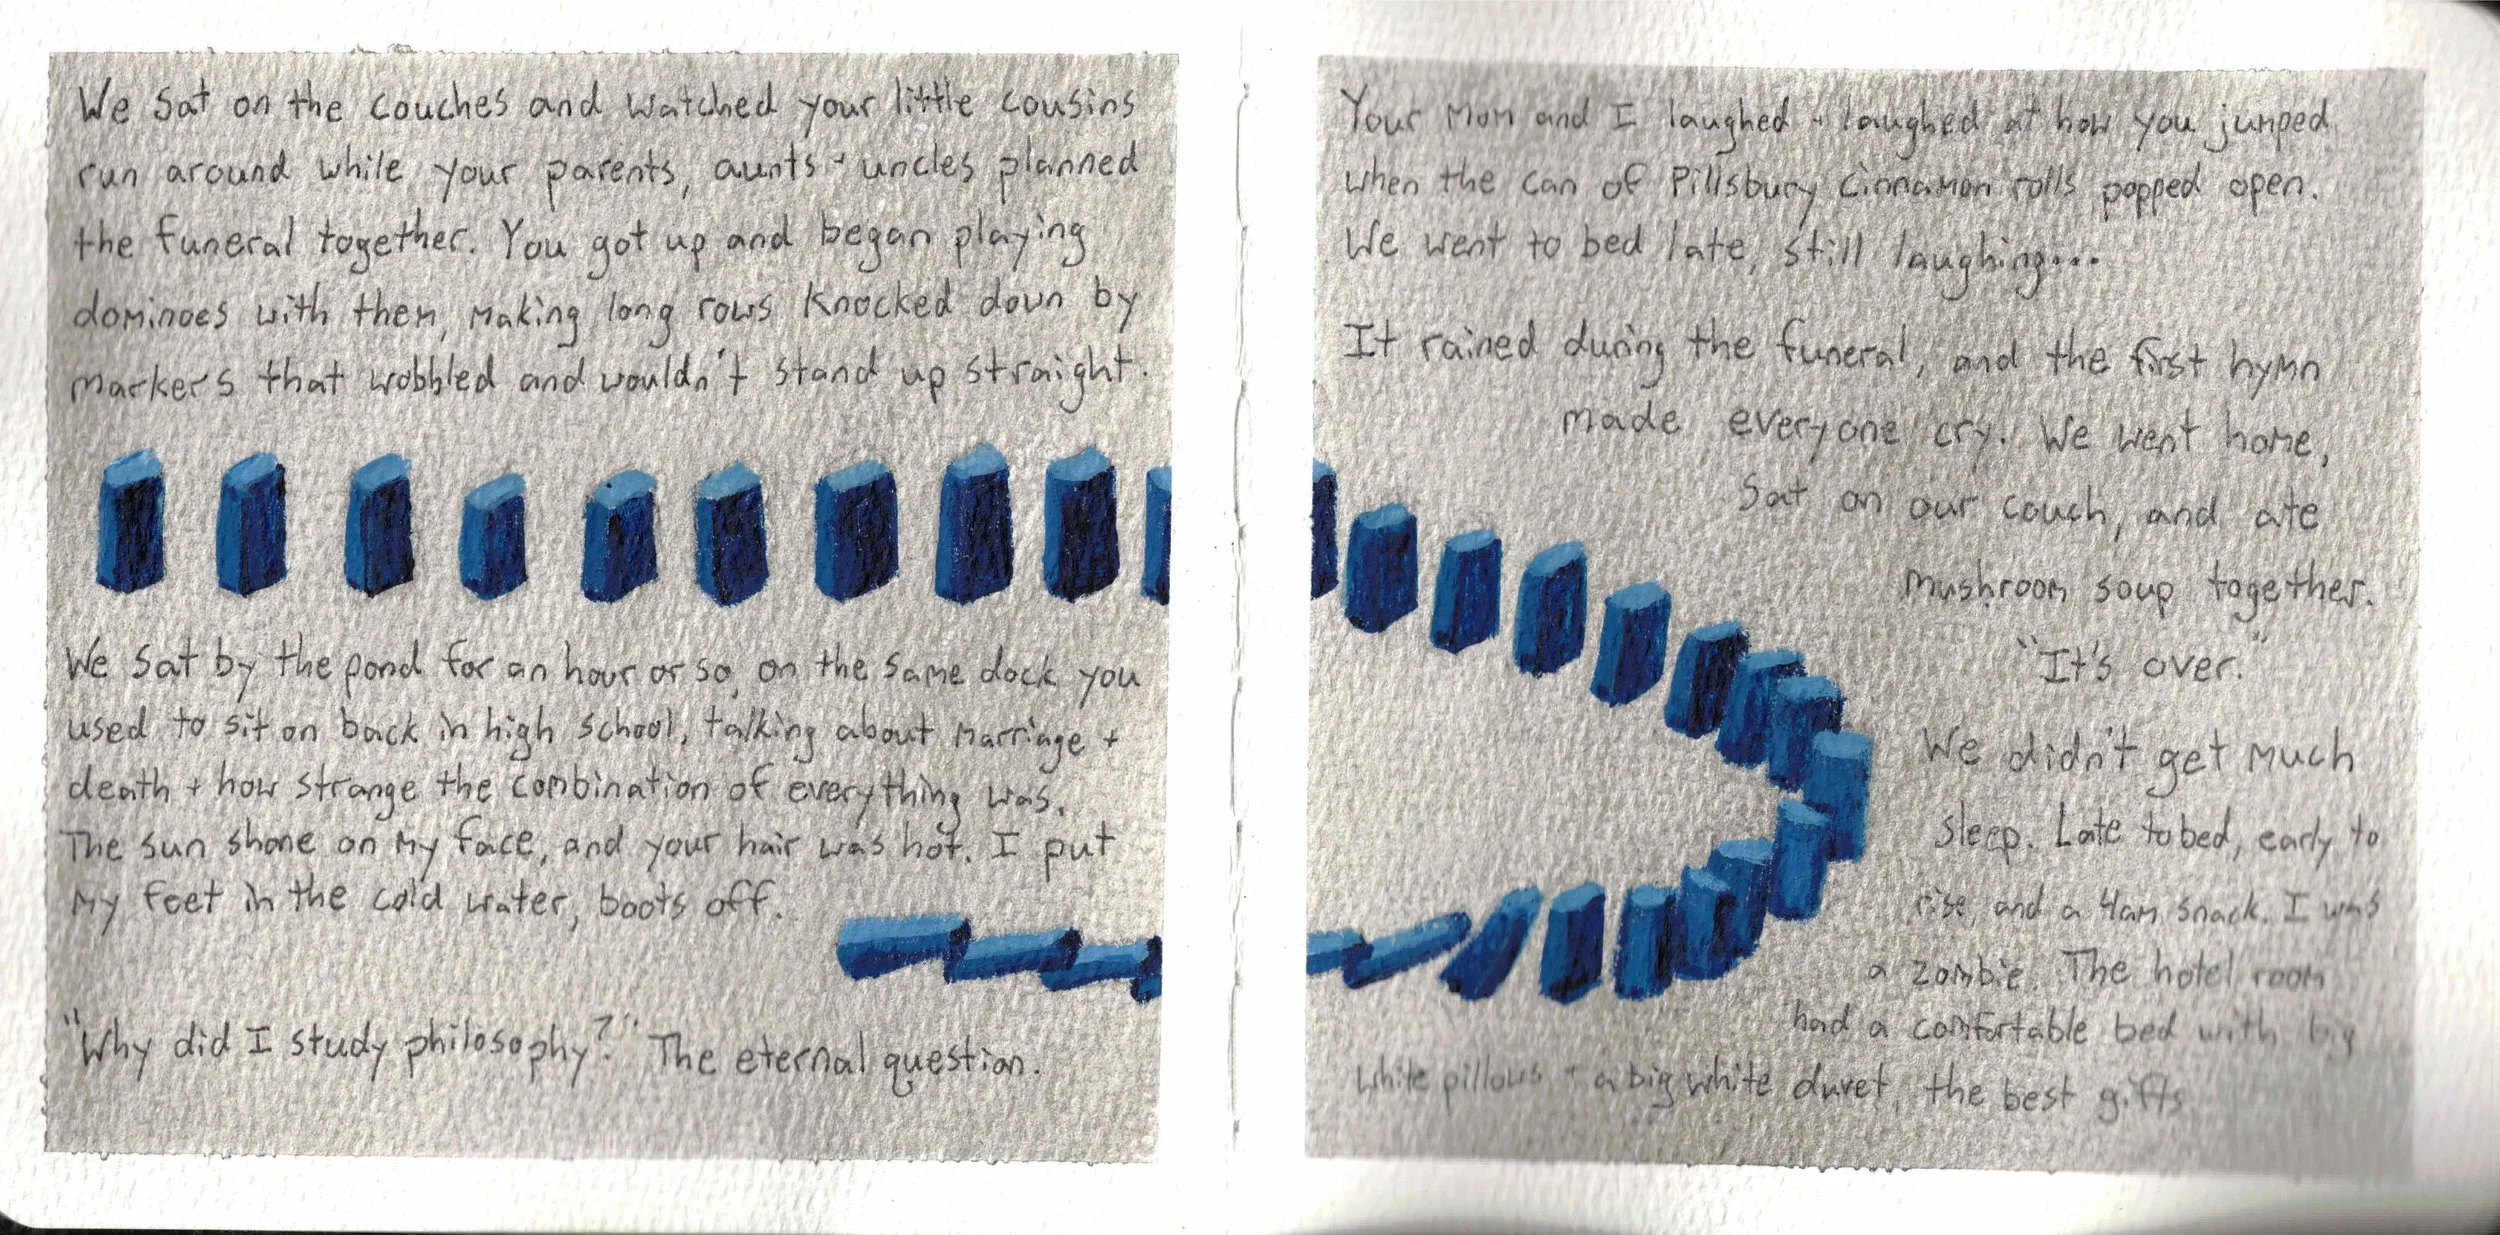 We sat on the couches and watched your little cousins
run around while your parents, aunts + uncles planned
the funeral together. You got up and began playing
dominoes with them, making long rows knocked down by
markers that wobbled and wouldn't stand up straight.
We sat by the pond for an hour or so, on the same dock you
used to sit on back in high school, talking about marriage +
death + how strange the combination of everything was.
The sun shone on my face, and your hair was hot. I put
my feet in the cold water, boots off.
"Why did I study philosophy?" The eternal question.
Your mom and I laughed + laughed at how you jumped
when the can of Pillsbury cinnamon rolls popped open.
We went to bed late, still laughing...
It rained during the funeral, and the first hymn
made everyone cry. We went home,
sat on our couch, and ate
mushroom soup together.
"It's over."
We didn't get much
sleep. Late to bed, early to
rise, and a 4am snack. I was
a zombie. The hotel room
had a comfortable bed with big
white pillows + a big white duvet, the best gifts